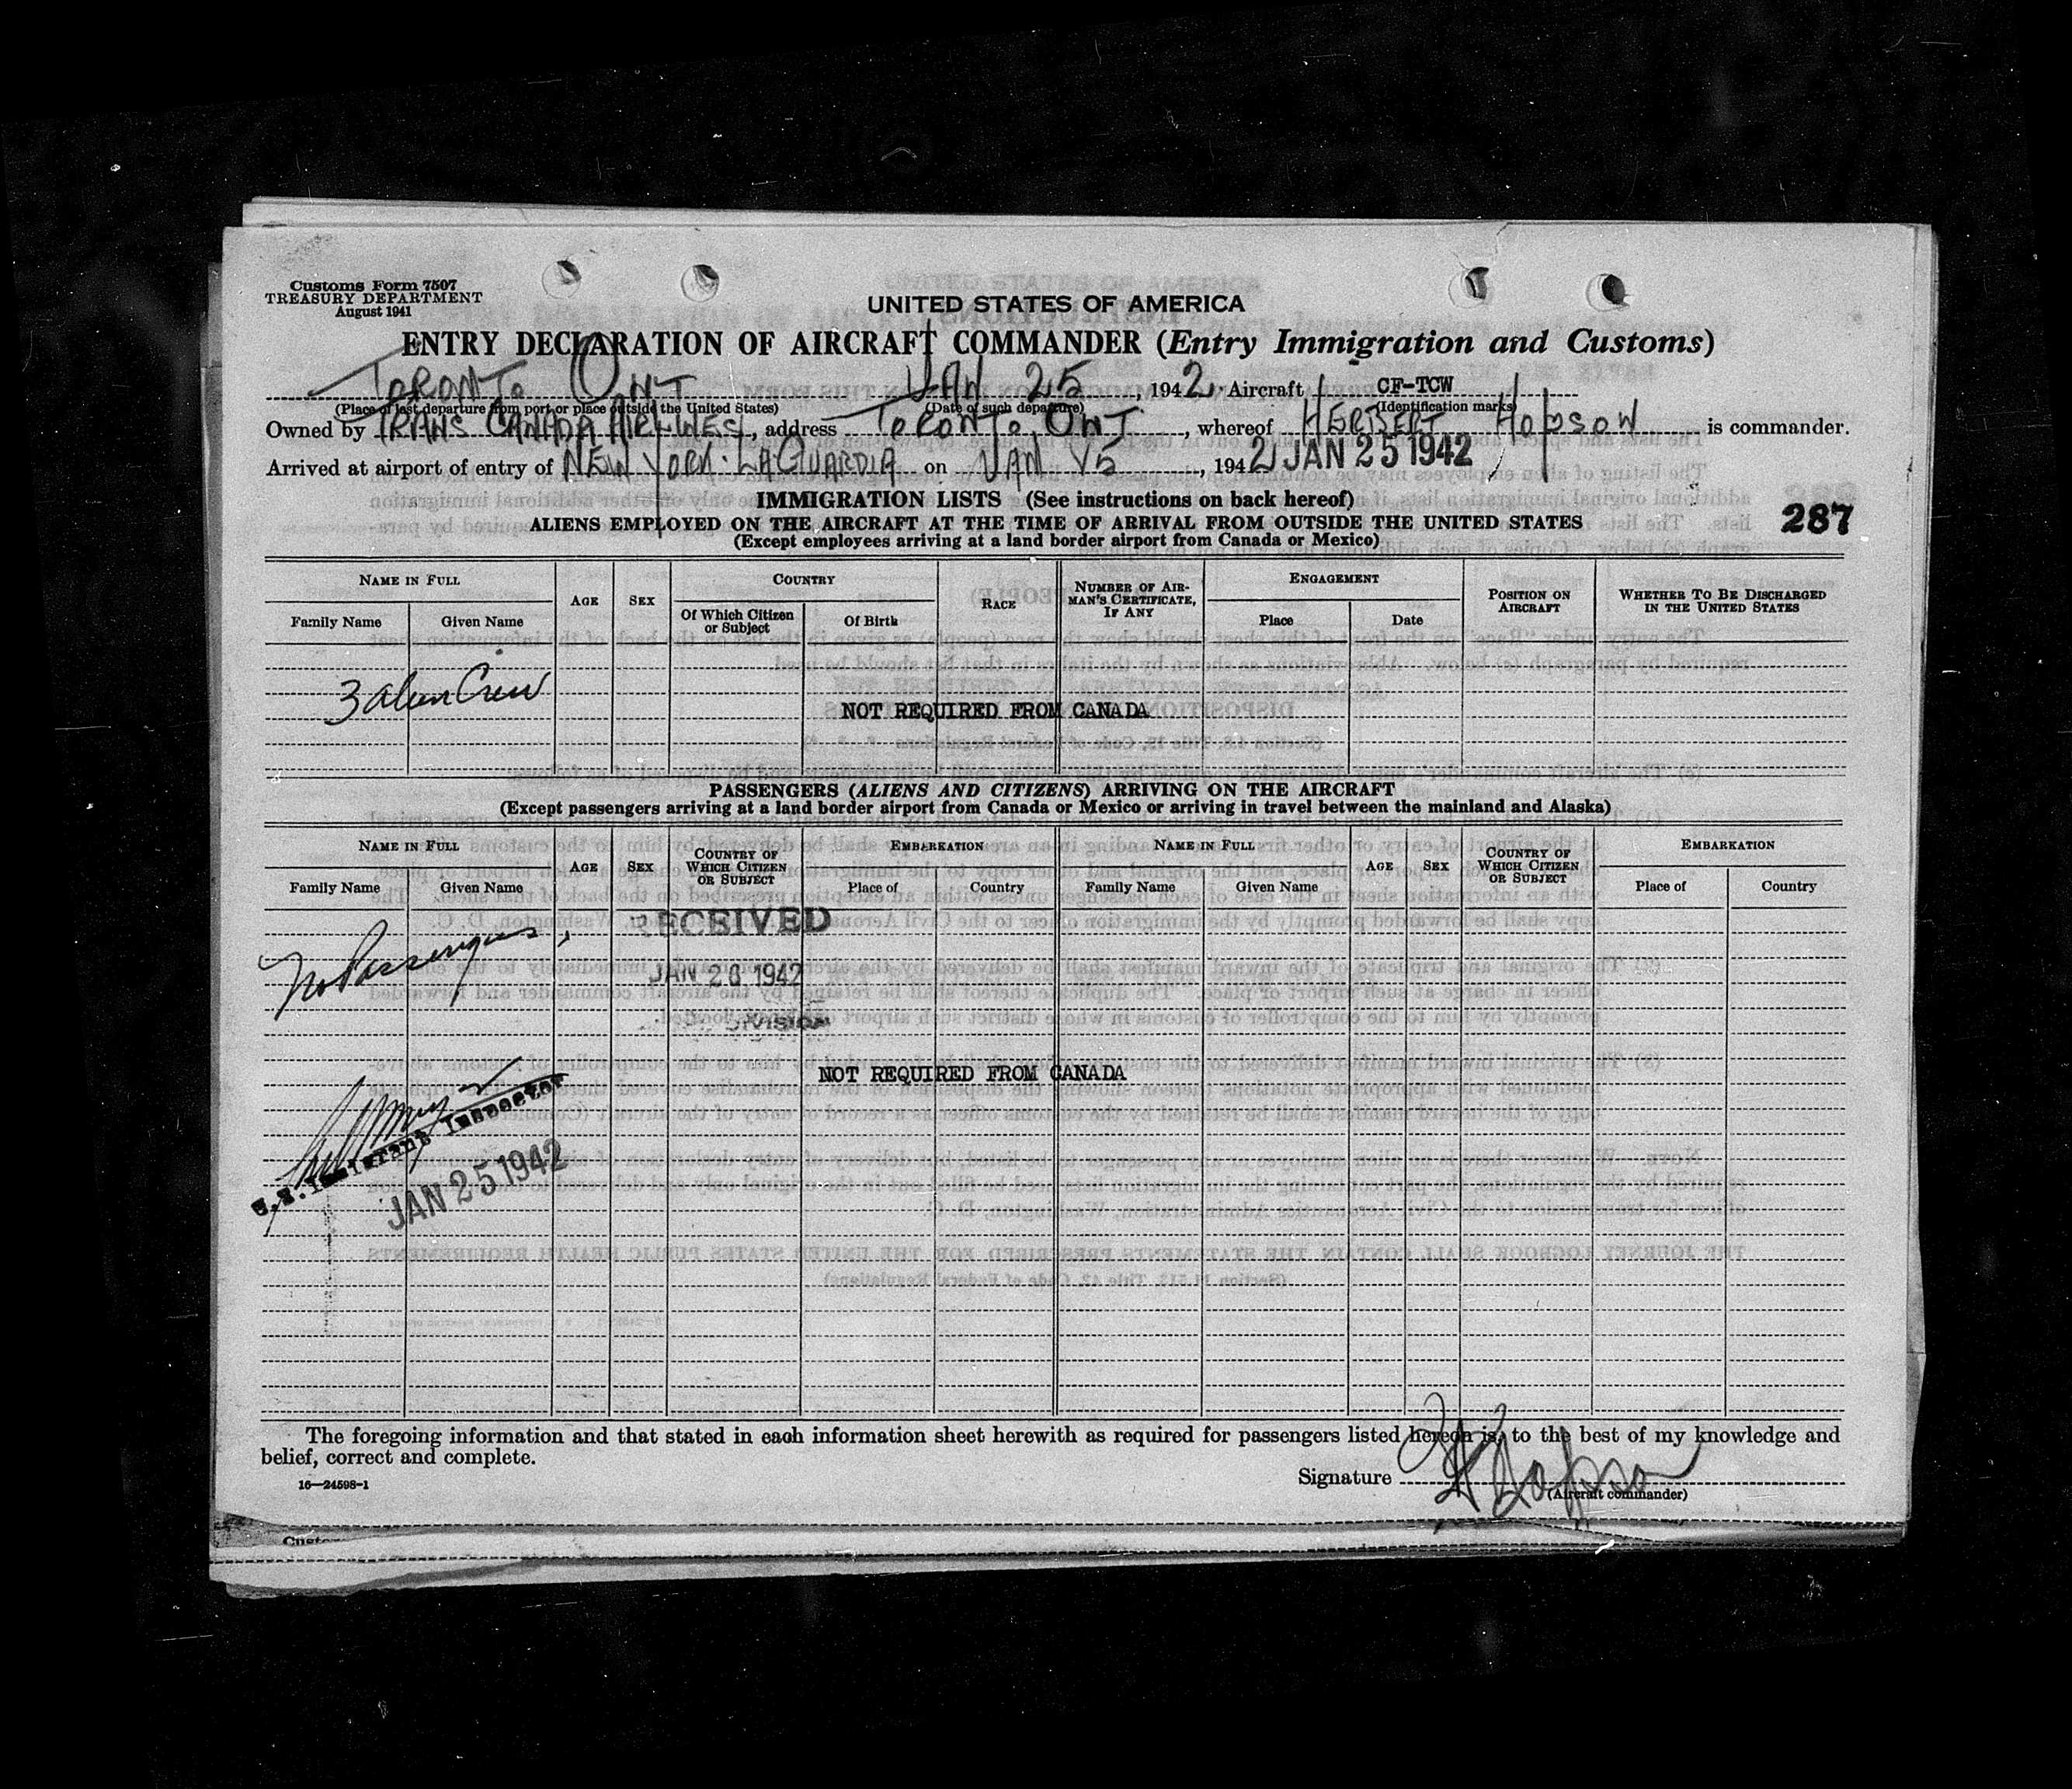 Customs Form 7507
TREASURY DEPARTMENT
August 1941
UNITED STATES OF AMERICA
ENTRY DECLARATION OF AIRCRAFT COMMANDER (Entry Immigration and Customs)
TORONTO ONT JAN 25, 1942. Aircraft CF-TCW
(Place of last departure from port or place outside the United States) (Date of such departure) (Identification marks)
Owned by TRANS CANADA AIRLINES, address TORONTO ONT, whereof HERBERT HOPSON is commander.
Arrived at airport of entry of NEW YORK. LAGUARDIA on JAN 25, 1942 JAN 25 1942
IMMIGRATION LISTS (See instructions on back hereof)
287
ALIENS EMPLOYED ON THE AIRCRAFT AT THE TIME OF ARRIVAL FROM OUTSIDE THE UNITED STATES
(Except employees arriving at a land border airport from Canada or Mexico)
NAME IN FULL AGE SEX COUNTRY RACE NUMBER OF AIRMAN'S CERTIFICATE, IF ANY ENGAGEMENT POSITION ON AIRCRAFT WHETHER TO BE DISCHARGED IN THE UNITED STATES
Family Name Given Name Of Which Citizen or Subject Of Birth Place Date
3 alien Crew
NOT REQUIRED FROM CANADA
PASSENGERS (ALIENS AND CITIZENS) ARRIVING ON THE AIRCRAFT
(Except passengers arriving at a land border airport from Canada or Mexico or arriving in travel between the mainland and Alaska)
NAME IN FULL AGE SEX COUNTRY OF WHICH CITIZEN OR SUBJECT EMBARKATION NAME IN FULL AGE SEX COUNTRY OF WHICH CITIZEN OR SUBJECT EMBARKATION
Family Name Given Name Place of Country Family Name Given Name Place of Country
RECEIVED
No Passengers
JAN 26 1942
DIVISION
NOT REQUIRED FROM CANADA
U.S. Immigrant Inspector
JAN 25 1942
The foregoing information and that stated in each information sheet herewith as required for passengers listed hereon is, to the best of my knowledge and
belief, correct and complete.
16—24598-1
Signature H Hopson
(Aircraft commander)